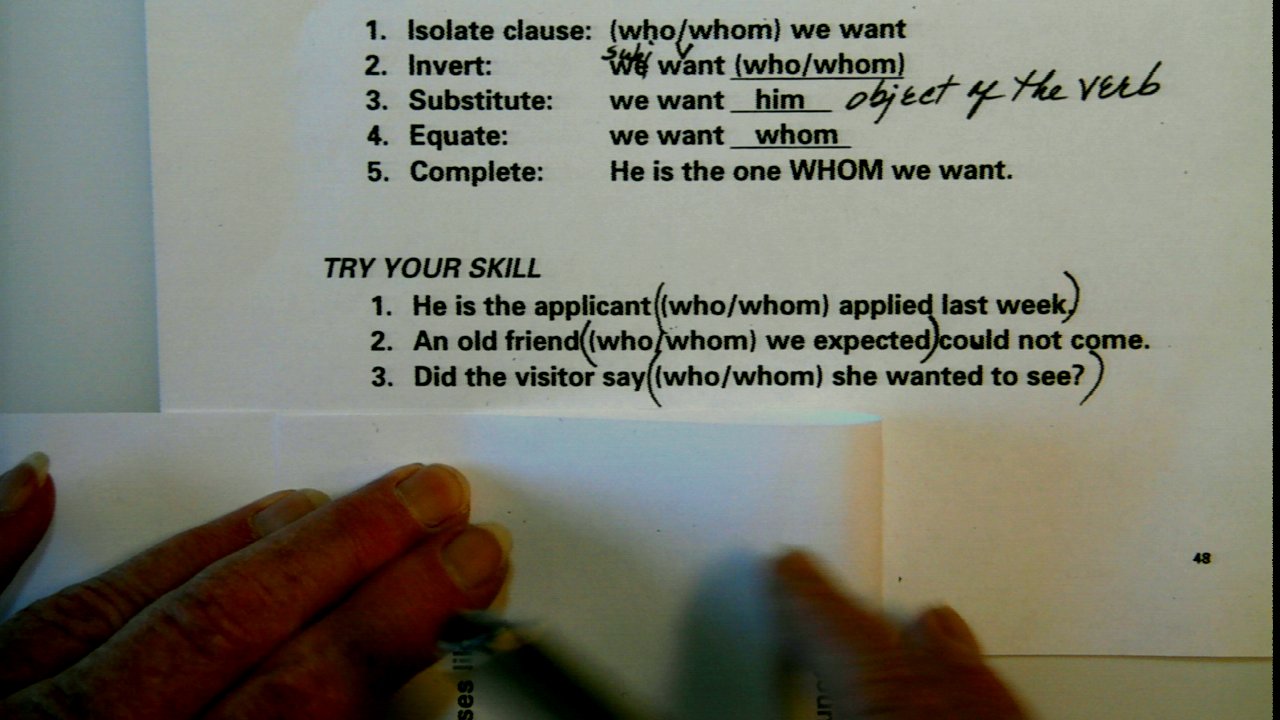 1. Isolate clause: (who/whom) we want
subj v
2. Invert: we want (who/whom)
3. Substitute: we want him object of the verb
4. Equate: we want whom
5. Complete: He is the one WHOM we want.
TRY YOUR SKILL
1. He is the applicant ((who/whom) applied last week.)
2. An old friend ((who/whom) we expected) could not come.
3. Did the visitor say ((who/whom) she wanted to see?)
48